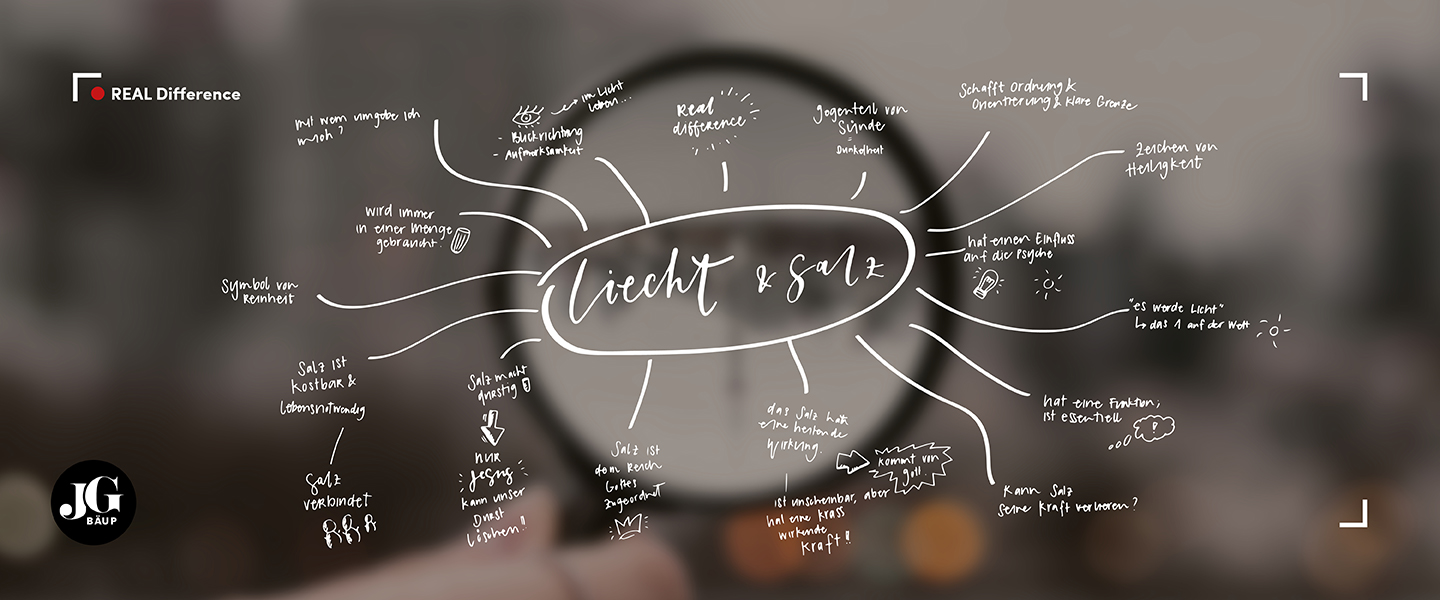 REAL Difference
mit wem umgebe ich
mich?
im Licht
leben...
- Blickrichtung
- Aufmerksamkeit
Real
difference
Gegenteil von
Sünde
=
Dunkelheit
Schafft Ordnung &
Orientierung & klare Grenze
Zeichen von
Heiligkeit
wird immer
in einer Menge
gebraucht!
hat einen Einfluss
auf die Psyche
Symbol von
Reinheit
Liecht & Salz
"es werde Licht"
↳ das 1 auf der Welt
Salz ist
kostbar &
lebensnotwendig
Salz
verbindet
Salz macht
durstig
nur
Jesus
kann unser
Durst
löschen!!
Salz ist
dem Reich
Gottes
zugeordnet
das Salz hat
eine heilende
Wirkung.
ist unscheinbar, aber
hat eine krass
wirkende
Kraft!!
kommt von
Gott.
hat eine Funktion,
ist essentiell
?
Kann Salz
seine Kraft verlieren?
JG
BÄUP